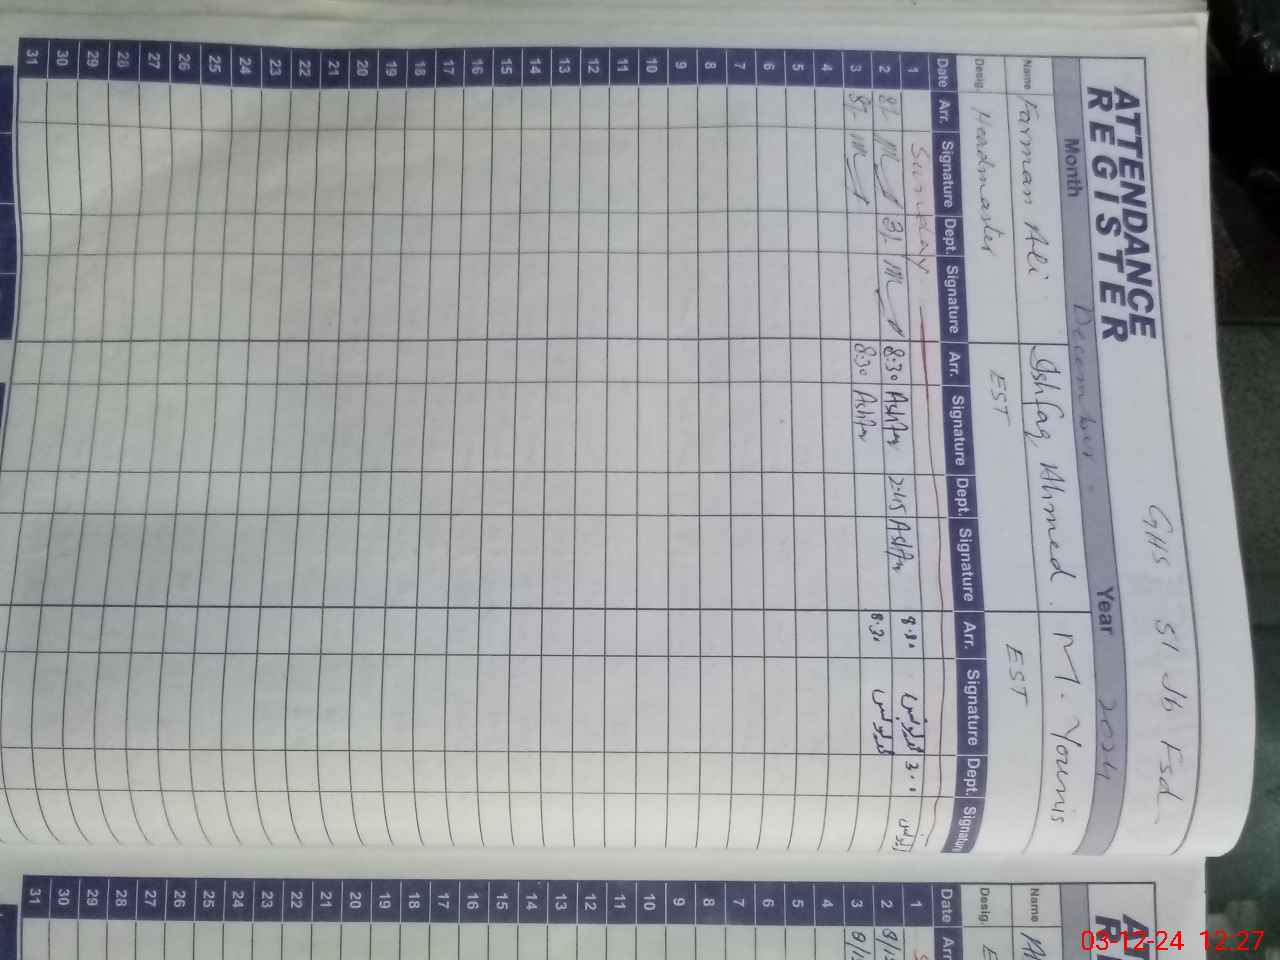 GHS 51 Jb Fsd
ATTENDANCE
REGISTER
Month December Year 2024
Name Farman Ali Ishfaq Ahmed. M. Younis
Desig. Headmaster EST EST
Date Arr. Signature Dept. Signature Arr. Signature Dept. Signature Arr. Signature Dept. Signature
1 Sunday
2 8/- 3/- 8:30 2:45 8:30 یونس 3:00 یونس
3 8/- 8:30 8:30 یونس
4
5
6
7
8
9
10
11
12
13
14
15
16
17
18
19
20
21
22
23
24
25
26
27
28
29
30
31
Name
Desig. E
Date Arr
1
2
3
4
5
6
7
8
9
10
11
12
13
14
15
16
17
18
19
20
21
22
23
24
25
26
27
28
29
30
31
03-12-24 12:27